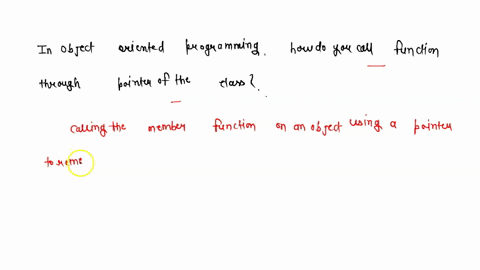 In object oriented programming, how do you call function
through pointer of the class?
Calling the member function on an object using a pointer
to